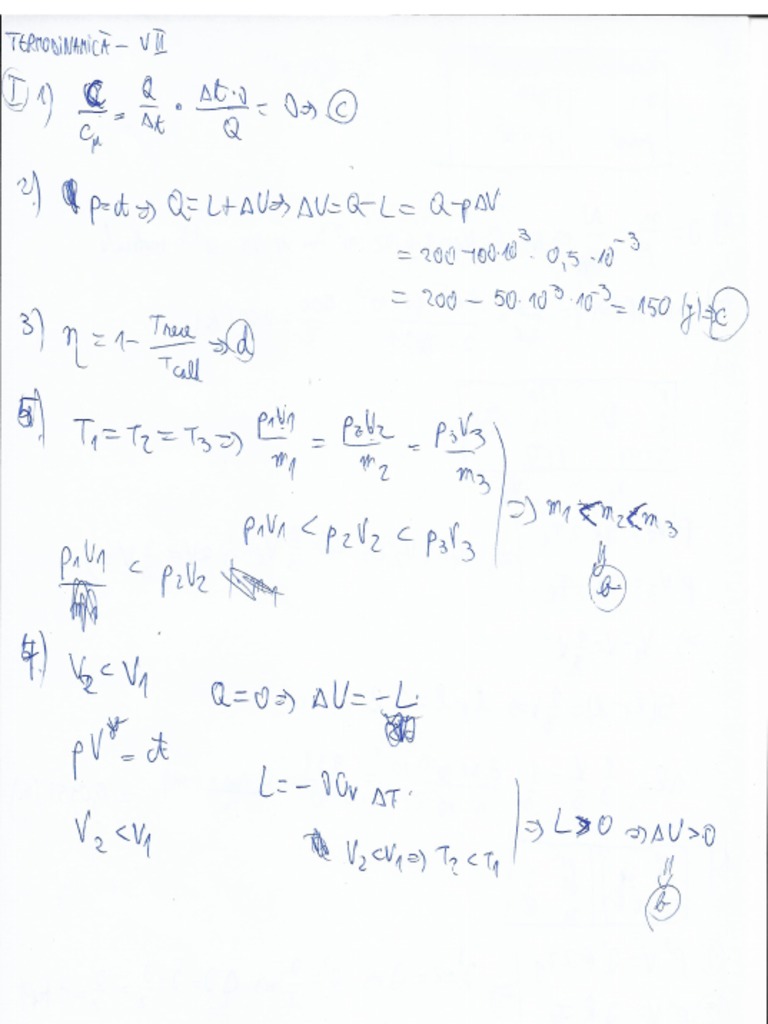 TERMODINAMICĂ - VII
I 1) C/Cμ = Q/Δt · Δt·ν/Q = ν ⇒ c
2) p=ct ⇒ Q=L+ΔU ⇒ ΔU=Q-L = Q-pΔV
= 200-100·10³ · 0,5·10⁻³
= 200 - 50·10³·10⁻³ = 150 (J) ⇒ c
3) η = 1 - Trece/Tcald ⇒ d
5) T₁=T₂=T₃ ⇒ p₁V₁/m₁ = p₂V₂/m₂ = p₃V₃/m₃
p₁V₁ < p₂V₂ < p₃V₃ ⇒ m₁ < m₂ < m₃
p₁V₁ < p₂V₂
⇓
b
4) V₂ < V₁
Q=0 ⇒ ΔU = -L
pV^γ = ct
L = -νCv ΔT
V₂ < V₁
V₂<V₁ ⇒ T₂<T₁ ⇒ L>0 ⇒ ΔU>0
⇓
b